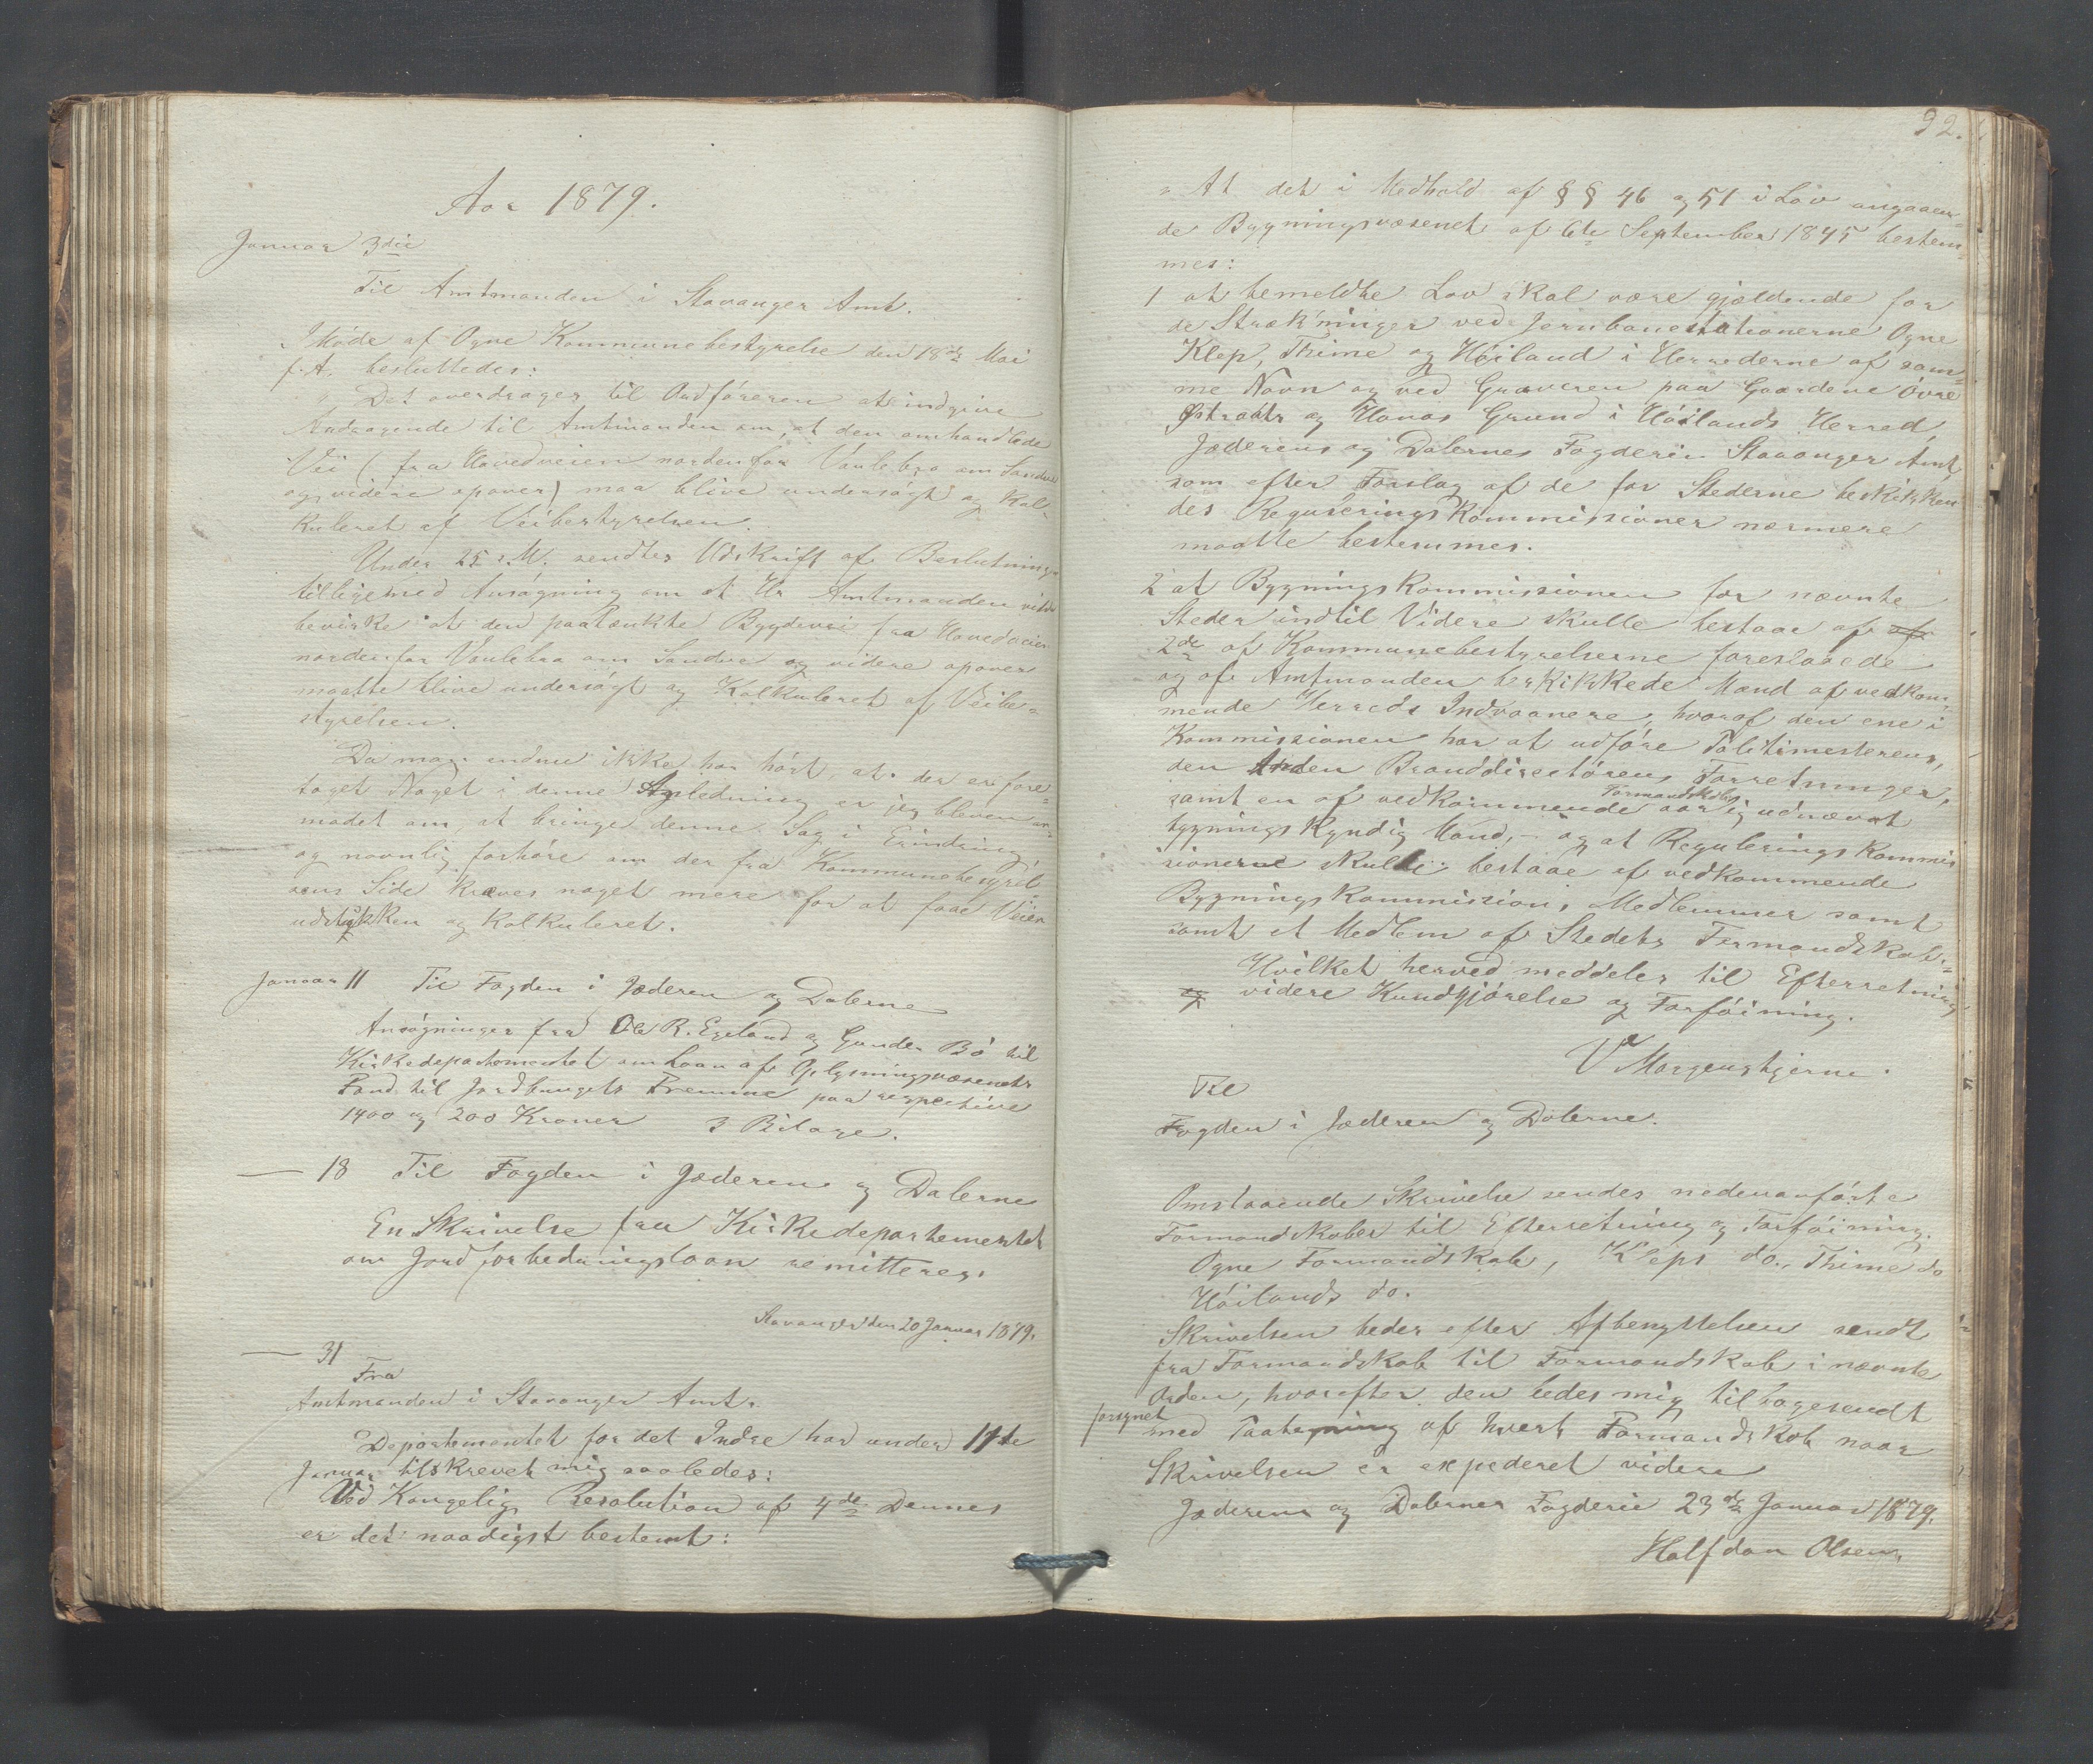 Aar 1879.
Januar 3die
Til Amtmanden i Stavanger Amt.
I Møde af Ogne Kommunebestyrelse den 18de Mai
f. A. besluttedes:
"Det overdrages til Ordføreren at indgive
Andragende til Amtmanden om, at den omhandlede
Vei (fra Hovedveien nordenfor Vaulebro om Sandve
og videre opover) maa blive undersøgt og Kal-
kuleret af Veibestyrelsen.
Under 25 s. M. sendtes Udskrift af Beslutning
tilligemed Ansøgning om at Hr Amtmanden vilde
bevirke at den paatænkte Bygdevei fra Hovedveien
nordenfor Vaulebro om Sandve og videre opover
maatte blive undersøgt og Kalkuleret af Veibe-
styrelsen.
Da man endnu ikke har hørt, at der er fore-
taget Noget i denne Anledning er jeg bleven an-
modet om, at bringe denne Sag i Erindring,
og navnlig forhøre om der fra Kommunebestyrel
sens Side kræves noget mere for at faae Veien
udstukken og Kalkuleret.
Januar 11 Til Fogden i Jæderen og Dalerne
Ansøgninger fra Ole R. Egeland og Gunder Bø til
Kirkedepartementet om Laan af Oplysningsvæsenets
Fond til Jordbrugets Fremme paa respective
1400 og 200 Kroner 3 Bilage.
— 18 Til Fogden i Jæderen og Dalerne
En Skrivelse fra Kirkedepartementet
om Jordforbedringslaan remitteres.
Stavanger den 20 Januar 1879.
— 31
Fra
Amtmanden i Stavanger Amt.
Departementet for det Indre har under 11te
Januar tilskrevet mig saaledes:
Ved Kongelig Resolution af 4de Dennes
er det naadigst bestemt:
92.
"At det i Medhold af §§ 46 og 51 i Lov angaaen-
de Bygningsvæsenet af 6te September 1845 bestem-
mes:
1 at bemeldte Lov skal være gjældende for
de Strækninger ved Jernbanestationerne Ogne
Klep, Thime og Høiland i Herrederne af sam-
me Navn og ved Graveren paa Gaardene øvre
Østraats og Hanas Grund i Høilands Herred,
Jæderens og Dalernes Fogderi Stavanger Amt,
som efter Forslag af de for Stederne beskikken
des Reguleringskommissioner nærmere
maatte bestemmes.
2 at Bygningskommissionen for nævnte
Steder indtil Videre skulle bestaae af af
2de af Kommunebestyrelserne foreslaaede
og af Amtmanden beskikkede Mænd af vedkom-
mende Herreds Indvaanere, hvoraf den ene i
Kommissionen har at udføre Politimesterens,
den Anden Branddirectørens Forretninger,
samt en af vedkommende Formandskab aarlig udnævnt
bygningskyndig Mand, - og at Reguleringskommis
sionerne skulle bestaae af vedkommende
Bygningskommissions Medlemmer samt
samt et Medlem af Stedets Formandskab."
Hvilket herved meddeles til Efterretning
og videre Kundgjørelse og Forføining.
V Morgenstjerne.
Til
Fogden i Jæderen og Dalerne.
Omstaaende Skrivelse sendes nedenanførte
Formandskaber til Efterretning og Forføining.
Ogne Formandskab, Kleps do., Thime do
Høilands do.
Skrivelsen bedes efter Afbenyttelsen sendt
fra Formandskab til Formandskab i nævnte
Orden, hvorefter den bedes mig tilbagesendt
forsynet med Paategning af hvert Formandskab naar
Skrivelsen er expederet videre
Jæderens og Dalernes Fogderie 23de Januar 1879.
Halfdan Olsen.